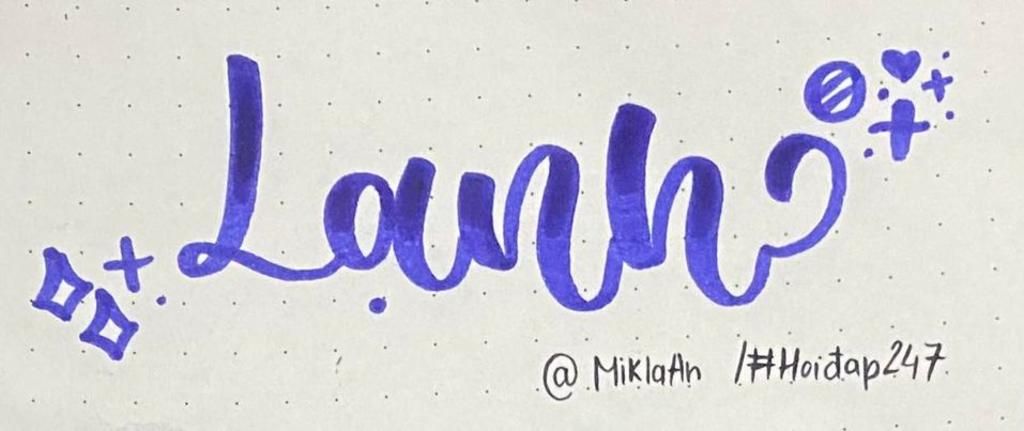 Lạnh
@ MiKlaAn /#Hoiđap247